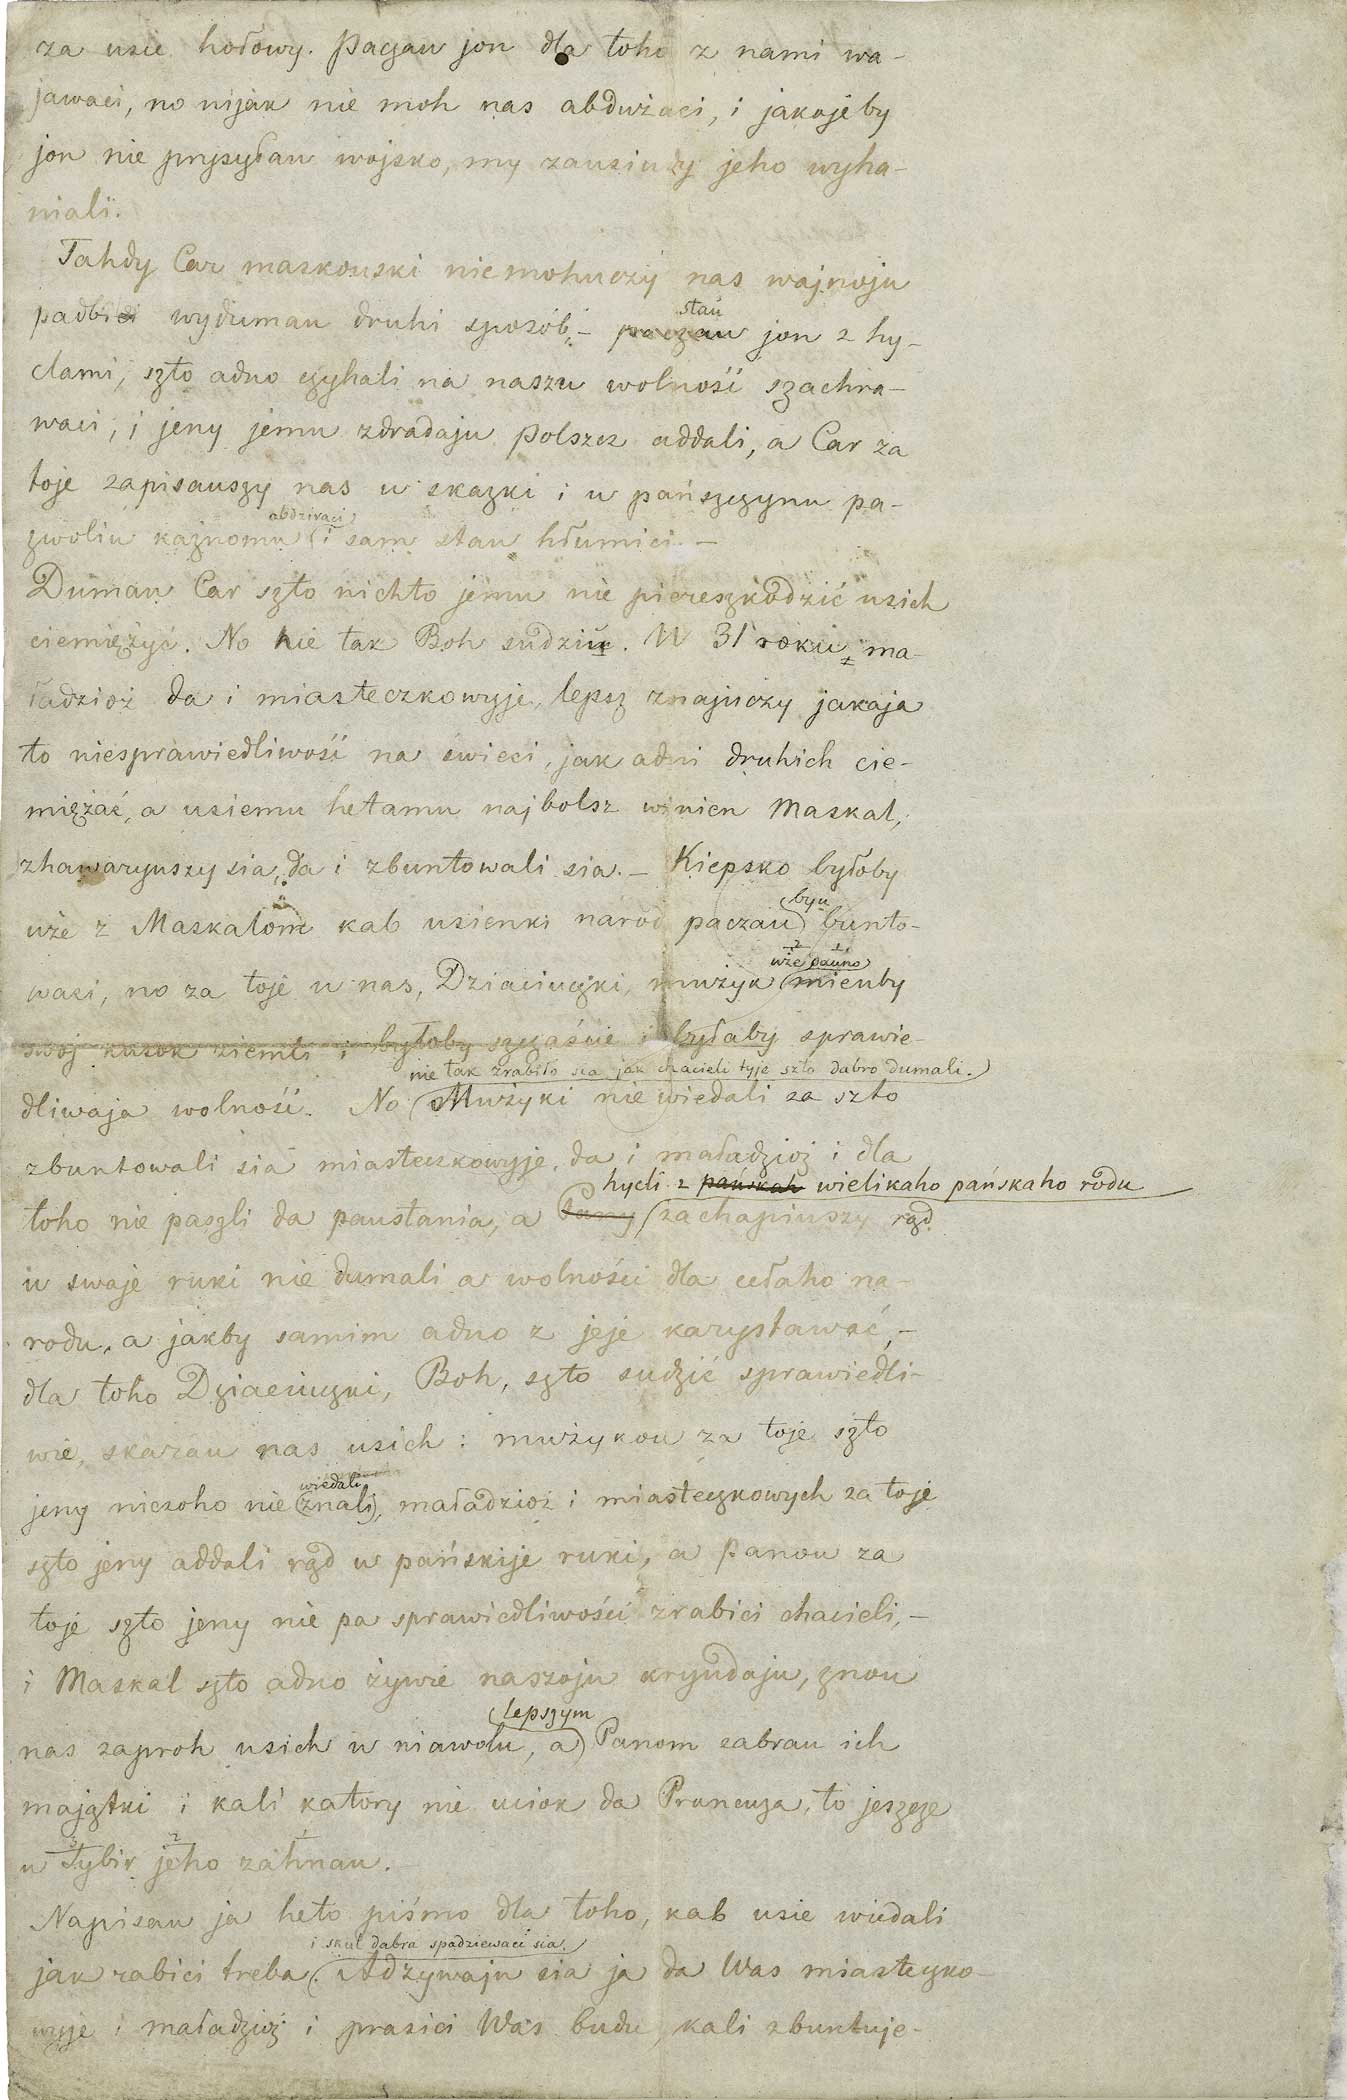 za usie hołowy. Paczau jon dla toho z nami wa-
jawaci, no nijak nie moh nas abdużaci, i jakojeby
jon nie prysyłau wojsko, my zausiudy jeho wyha-
niali.
Tahdy Car maskouski niemohuczy nas wajnoju
padbici wydumau druhi sposób, –
stau
paczau jon z hy-
clami, szto adno czyhali na naszu wolność szachra-
waci, i jeny jemu zdradaju Polszcz addali, a Car za
toje zapisauszy nas u skazki i u pańszczynu pa-
abdziraci
zwoliu kaznomu i sam stau hłumici. –
Dumau Car szto nichto jemu nie piereszkodzić usich
ciemiężyć. No nie tak Boh sudziu. W 31 roku, ma-
ładzioż da i miasteczkowyje, lepsz znajuczy jakaja
to niesprawiedliwość na świeci, jak adni druhich cie-
miężać, a usiemu hetamu najbolsz winien Maskal,
zhawaryuszy sia, da i zbuntowali sia. – Kiepsko byłoby
byu
uże z Maskalom kab usienki narod paczau bunto-
uże pauno
waci, no za toje u nas, Dziaciuczki, mużyk mieuby
swój kusok ziemli i byłoby szczaście i byłaby sprawie-
nie tak zrabiło sia jak chacieli tyje szto dabro dumali.
dliwaja wolność. No Mużyki nie wiedali za szto
zbuntowali sia miasteczkowyje, da i maładzioż i dla
hycli z pańskah wielikaho pańskaho rodu
toho nie paszli da paustania, a Pany zachapiuszy rząd
u swaje ruki nie dumali a wolności dla cełaho na-
rodu, a jakby samim adno z jeje karystawać, –
dla toho Dziaciuczki, Boh, szto sudzić sprawiedli-
wie, skarau nas usich: mużykou za toje szto
wiedali
jeny niczoho nie znali, maładzioż i miasteczkowych za toje
szto jeny addali rząd u pańskije ruki, a Panou za
toje szto jeny nie pa sprawiedliwości zrabici chacieli, –
i Maskal szto adno żywie naszoju kryudaju, znou
lepszym
nas zaproh usich u niawolu, a Panom zabrau ich
majątki i kali katory nie uciok da Prancuza, to jeszcze
u Sybir jeho zahnau.
Napisau ja heto piśmo dla toho, kab usie wiedali
i skul dabra spadziewaci sia.
jak rabici treba. Adzywaju sia ja da Was miasteczko-
wyje i maładzioż i prasici Was budu, kali zbuntuje-